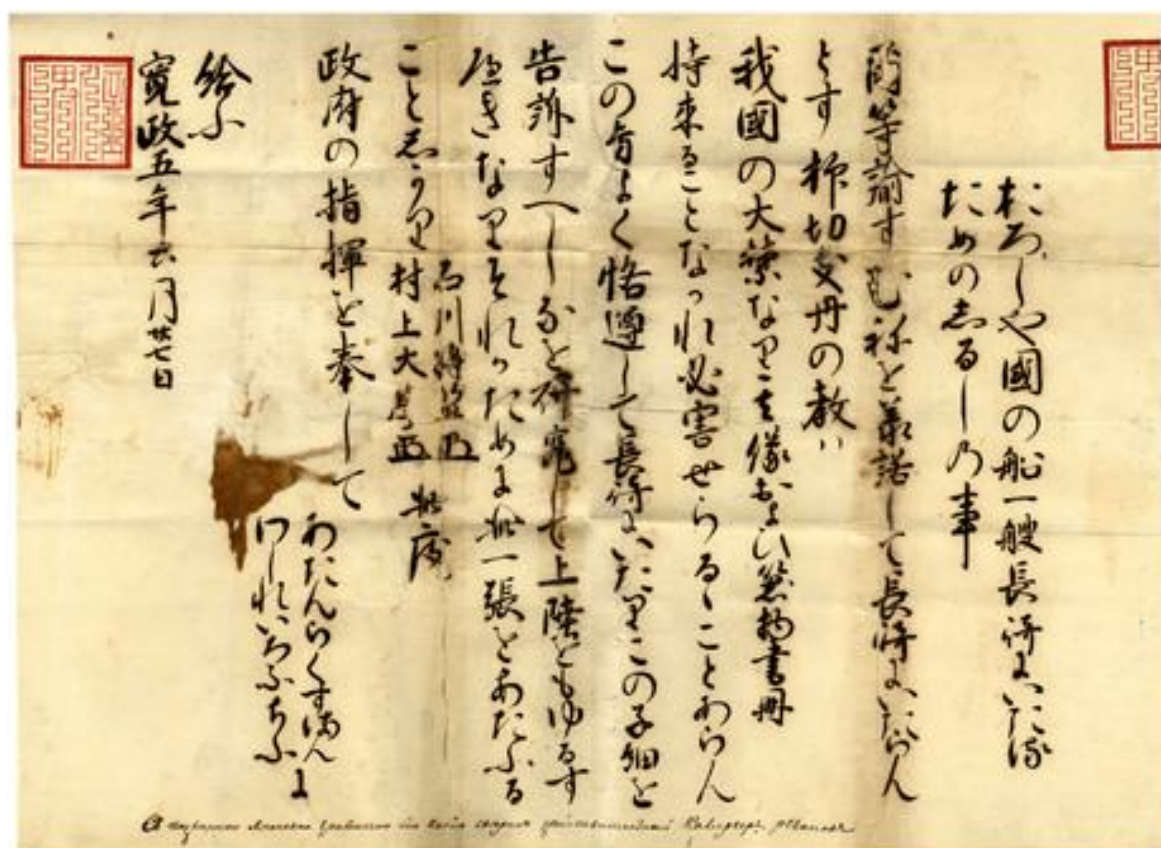 おろしや國の船一艘長崎にいたる
ためのしるしの事
爾等諭すむねを承諾して長崎にいたらん
とす抑切支丹の教ハ
我國の大禁なり其像および器物書冊
持来ることなかれ必害せらるゝことあらん
この旨よく恪遵して長崎にいたりこの子細を
告訴すへしなを研究して上陸をもゆるす
へきなりそれかために此一張をあたふる
ことしかり
石川将監
村上大学 此度
政府の指揮を奉して
あたんらくすまんに
わしれいろふちふ
給ふ
寛政五年六月廿七日